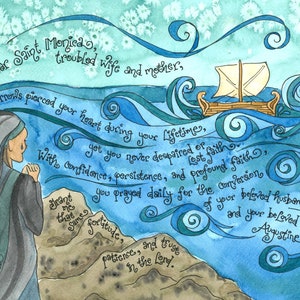 Saint Monica,
troubled wife and mother,
pierced your heart during your lifetime,
yet you never despaired or
lost faith.
With confidence, persistence, and profound faith,
you prayed daily for the conversion
of your beloved
and your beloved
Augustine
Grant me
that same
fortitude,
patience, and trust
in the Lord.